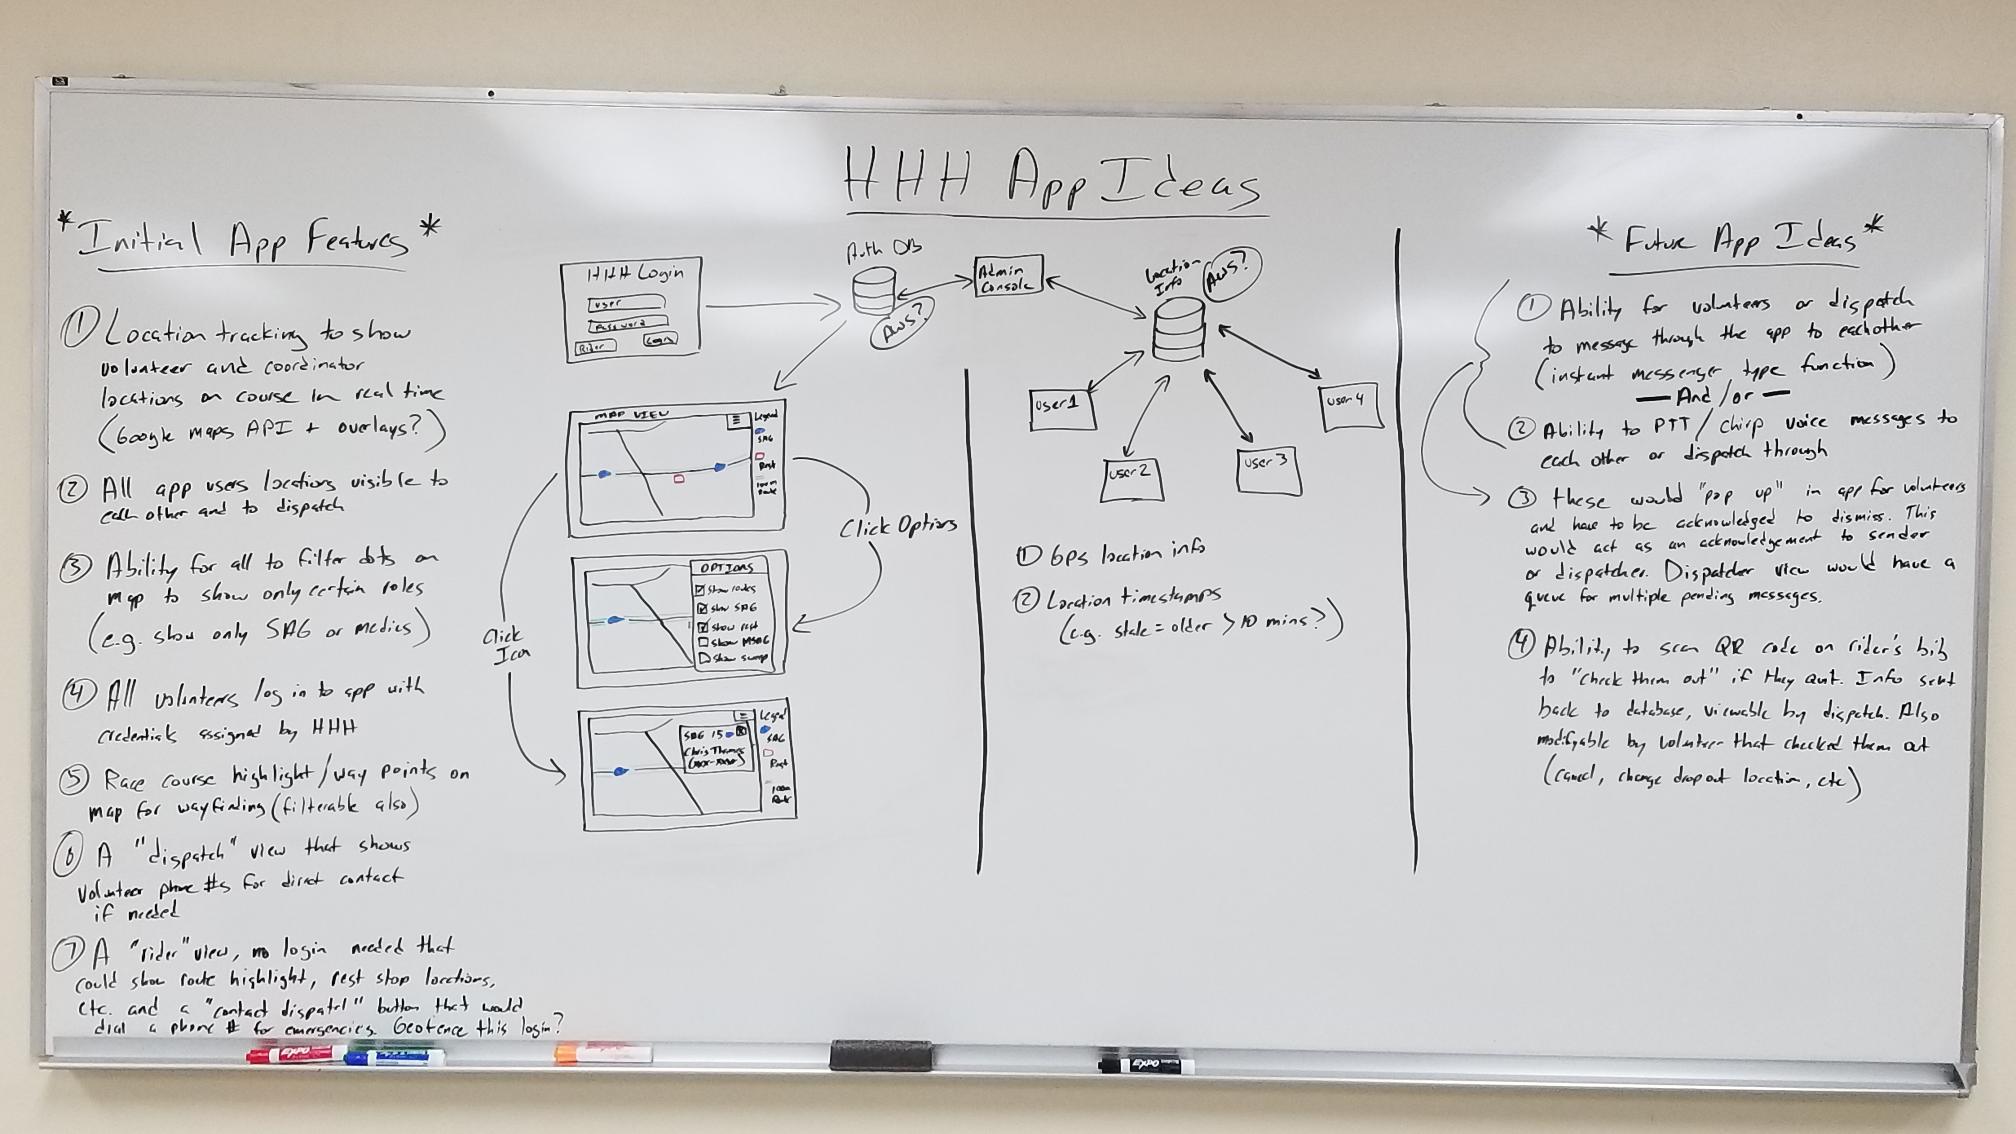 HHH App Ideas
*Initial App Features*
① Location tracking to show
volunteer and coordinator
locations on course in real time
(Google maps API + overlays?)
② All app users locations visible to
each other and to dispatch
③ Ability for all to filter dots on
map to show only certain roles
(e.g. show only SAG or medics)
④ All volunteers log in to app with
credentials assigned by HHH
⑤ Race course highlight/way points on
map for wayfinding (filterable also)
⑥ A "dispatch" view that shows
volunteer phone #s for direct contact
if needed
⑦ A "rider" view, no login needed that
could show route highlight, rest stop locations,
etc. and a "contact dispatch" button that would
dial a phone # for emergencies. Geofence this login?
HHH Login
user
Password
Rider
Login
Auth DB
AWS?
Admin
Console
Location
Info
AWS?
user1
user2
user3
user4
MAP VIEW
Legend
SAG
Rest
100m
Route
Click Options
OPTIONS
Show routes
Show SAG
Show rest
Show MSAG
Show sweep
Click
Icon
SAG 15
X
Chris Thomas
Legend
SAG
Rest
100m
Route
① GPS location info
② Location timestamps
(e.g. stale = older >10 mins?)
*Future App Ideas*
① Ability for volunteers or dispatch
to message through the app to eachother
(instant messenger type function)
— And/or —
② Ability to PTT/chirp voice messages to
each other or dispatch through
③ these would "pop up" in app for volunteers
and have to be acknowledged to dismiss. This
would act as an acknowledgement to sender
or dispatcher. Dispatcher view would have a
queue for multiple pending messages.
④ Ability to scan QR code on rider's bib
to "check them out" if they quit. Info sent
back to database, viewable by dispatch. Also
modifyable by volunteer that checked them out
(cancel, change dropout location, etc)
EXPO
EXPO